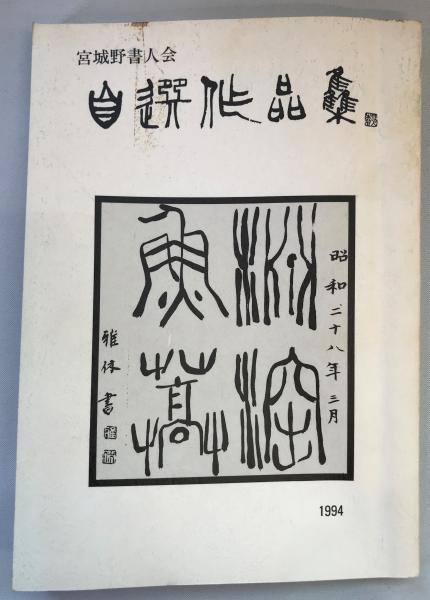 宮城野書人会
自選作品集
昭和二十八年三月
淵深
魚
雅休書
1994